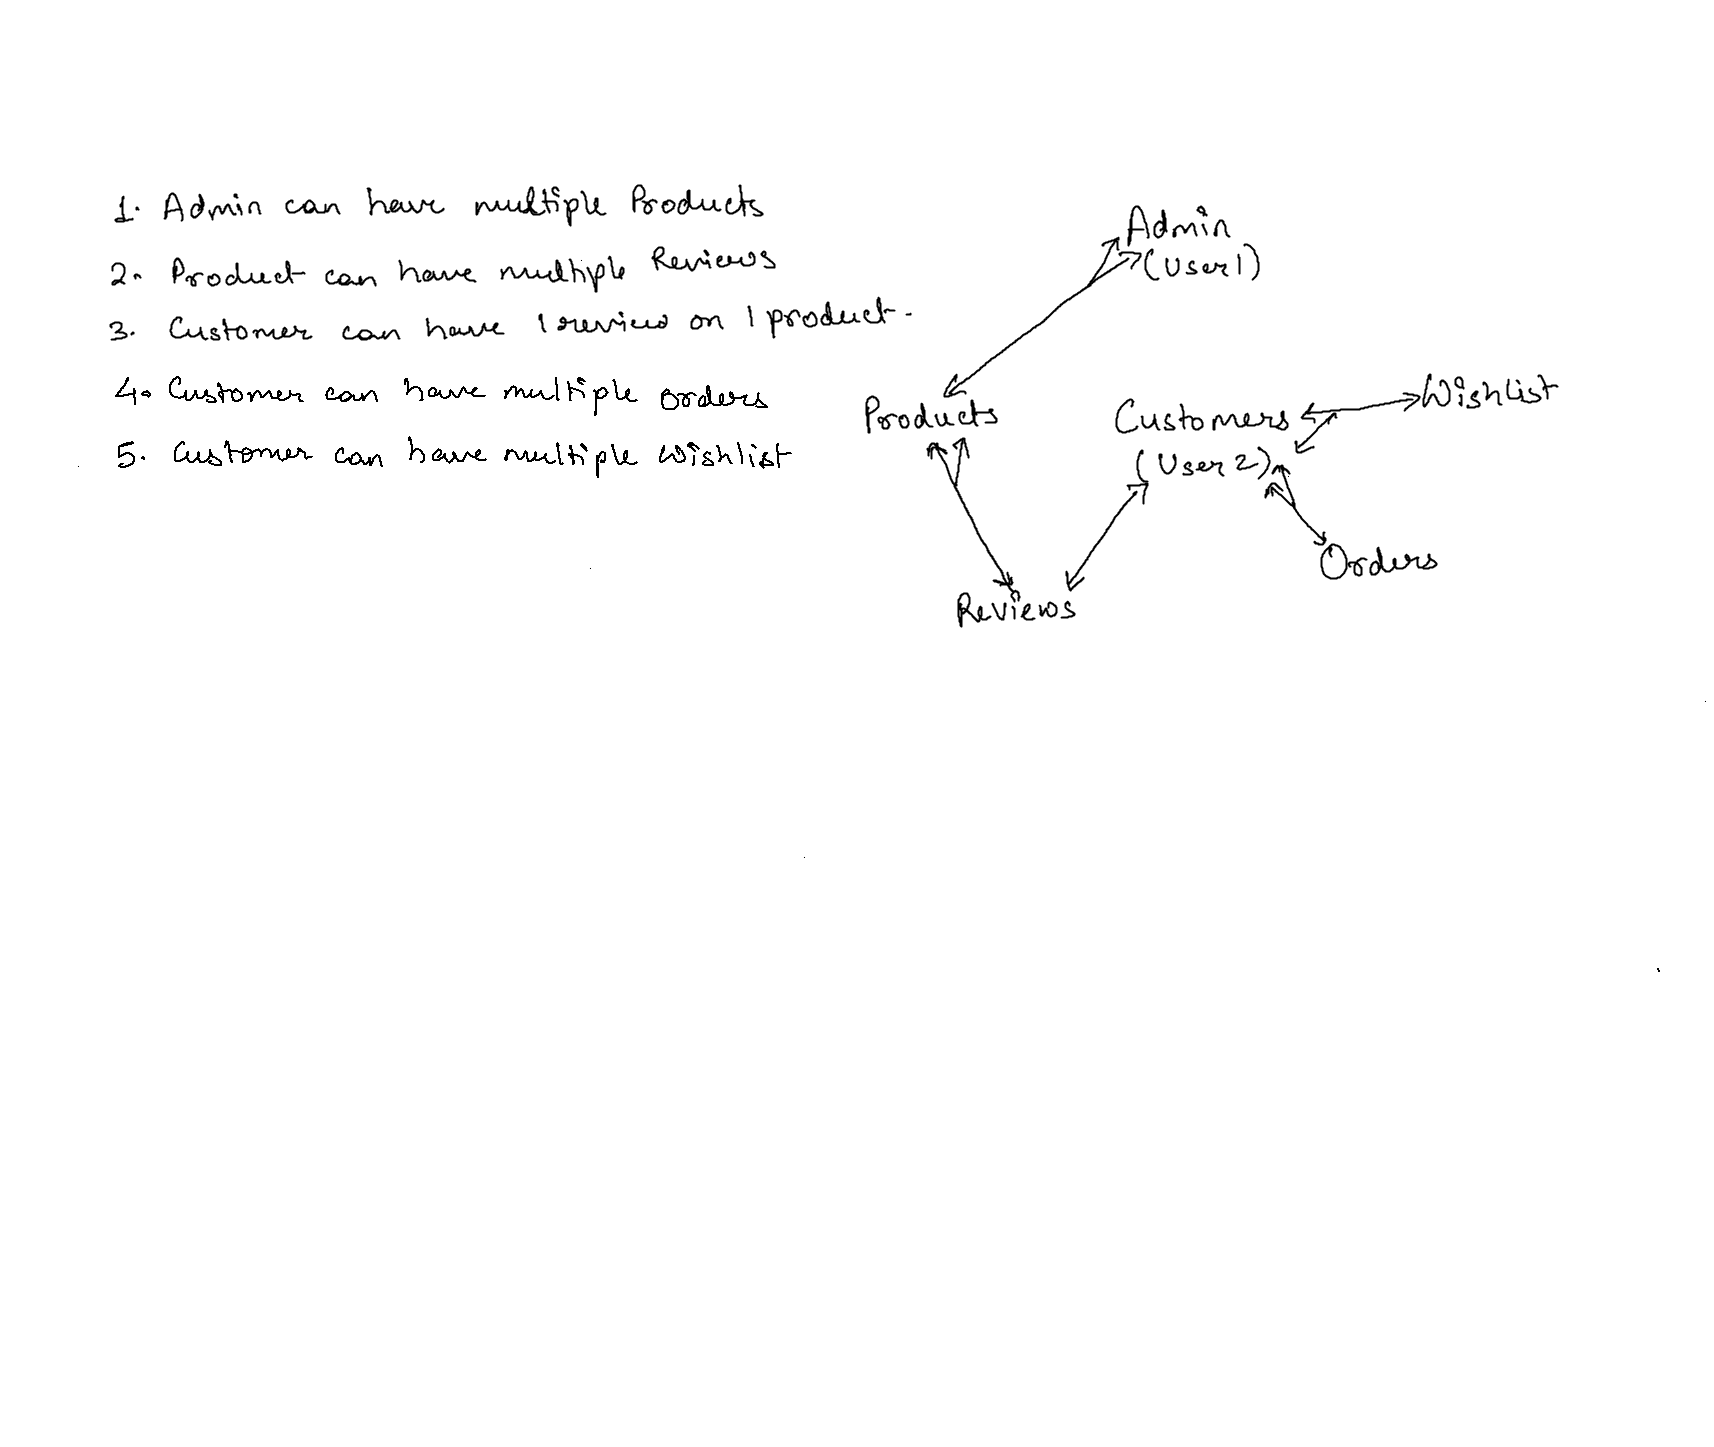 1. Admin can have multiple Products
2. Product can have multiple Reviews
3. Customer can have 1 review on 1 product.
4. Customer can have multiple orders
5. Customer can have multiple Wishlist
Admin
(User 1)
Products
Customers
(User 2)
Wishlist
Orders
Reviews